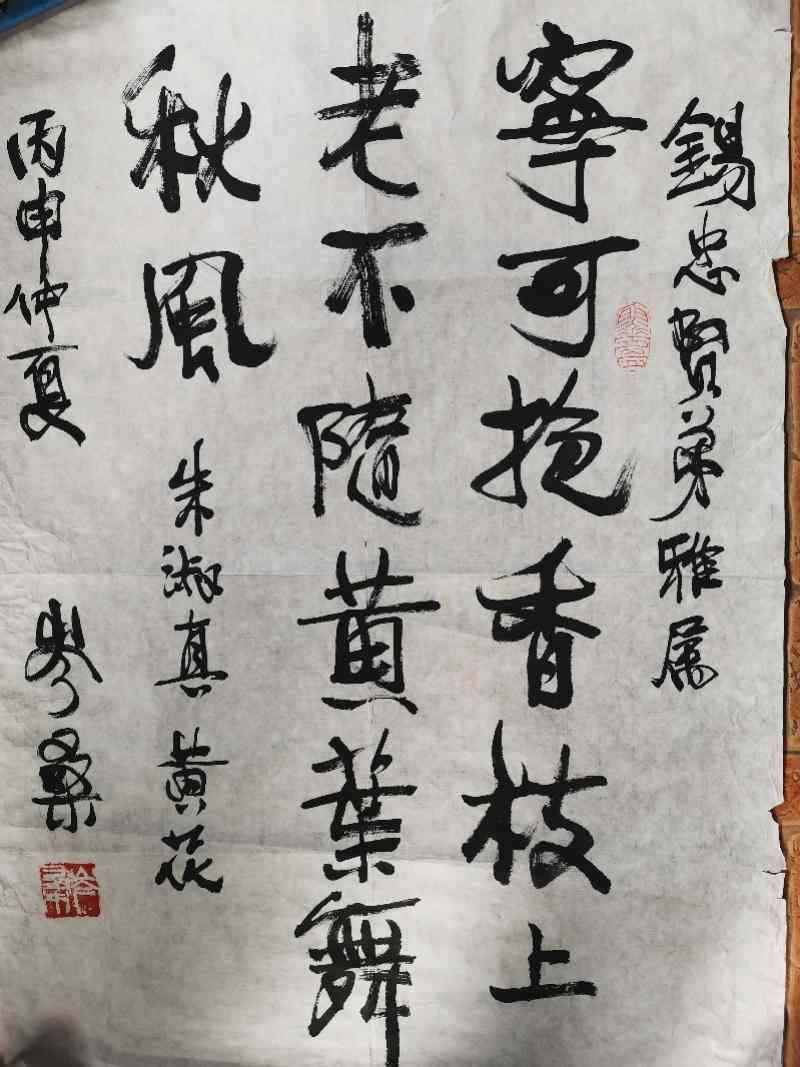 錫忠賢弟雅属
寧可抱香枝上
老不隨黃葉舞
秋風
朱淑真 黄花
丙申仲夏
岑桑